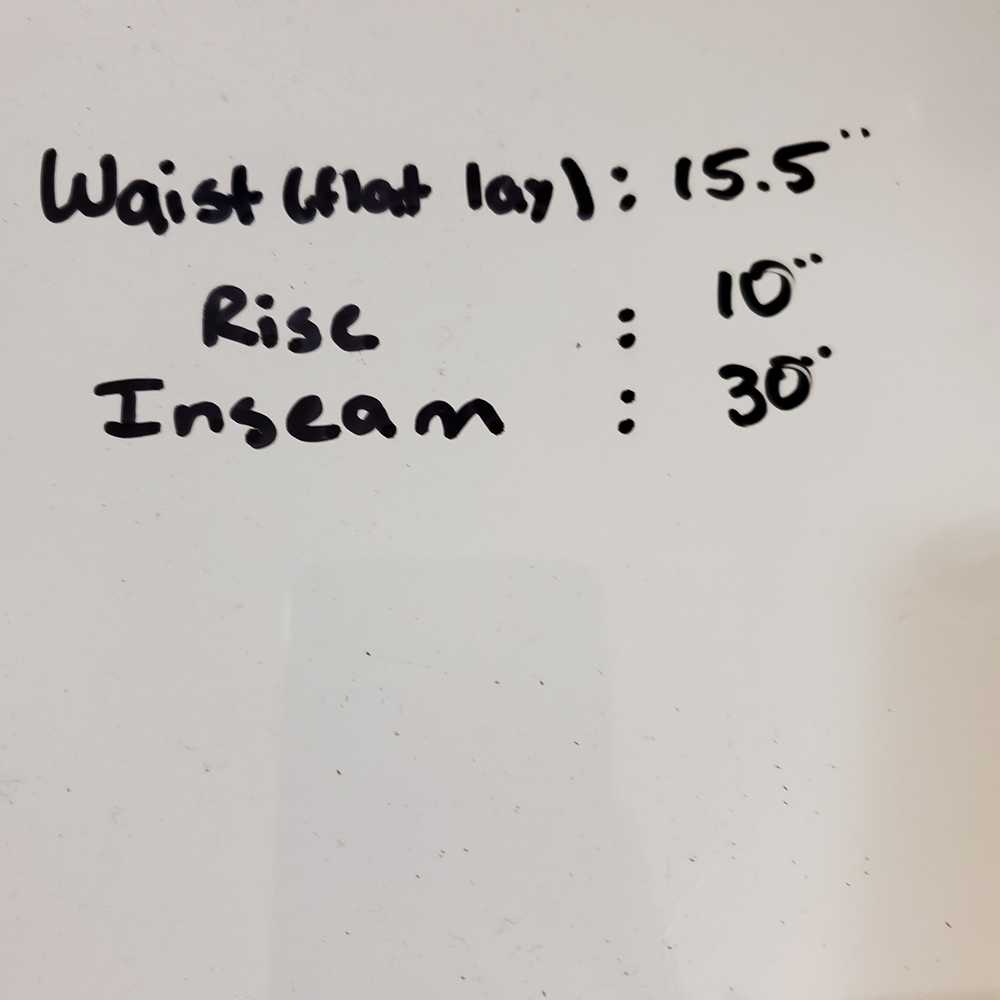 Waist (flat lay) : 15.5"
Rise : 10"
Inseam : 30"